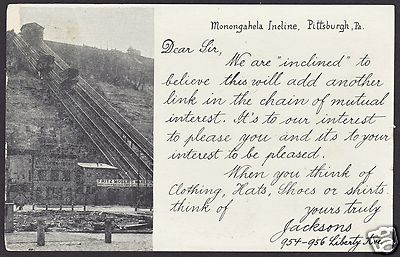 Monongahela Incline, Pittsburgh, Pa.
Dear Sir,
We are "inclined" to
believe this will add another
link in the chain of mutual
interest. It's to our interest
to please you and its to your
interest to be pleased.
When you think of
Clothing, Hats, Shoes or shirts
think of yours truly
Jacksons
954-956 Liberty Ave.